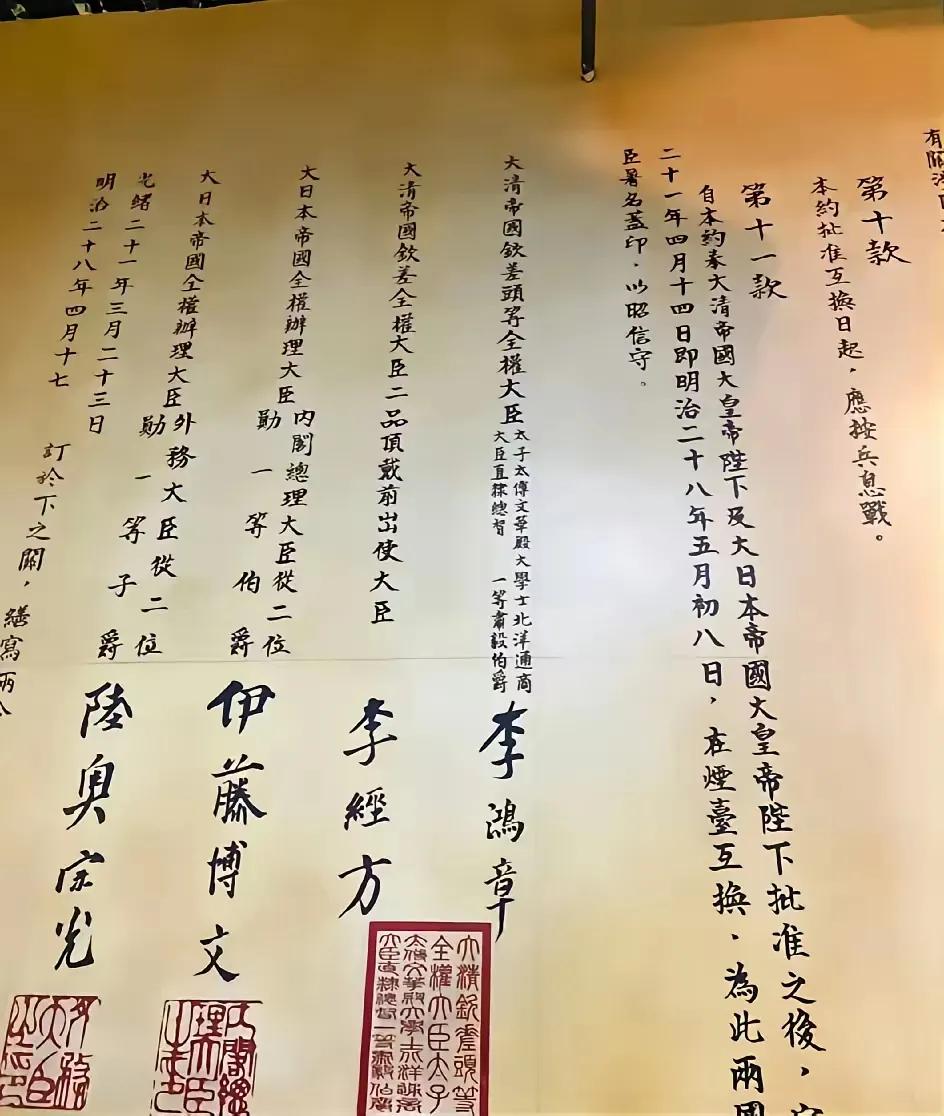 第十款
本約批准互換日起，應按兵息戰。
第十一款
自本約奉大清帝國大皇帝陛下及大日本帝國大皇帝陛下批准之後，
二十一年四月十四日即明治二十八年五月初八日，在煙臺互換．為此兩國
臣署名蓋印．以昭信守。
大清帝國欽差頭等全權大臣
太子太傅文華殿大學士北洋通商
大臣直隸總督 一等肅毅伯爵
李鴻章
大清帝國欽差全權大臣二品頂戴前出使大臣
李經方
大日本帝國全權辦理大臣
內閣總理大臣從二位
勛一等伯爵
伊藤博文
大日本帝國全權辦理大臣
外務大臣從二位
勛一等子爵
陸奧宗光
光緒二十一年三月二十三日
明治二十八年四月十七
訂於下之關，繕寫兩
大清欽差頭等
全權大臣太子
太傅文華殿大學士北洋通商
大臣直隸總督一等肅毅伯爵
內閣總
理大臣
之印
外務
大臣
之印